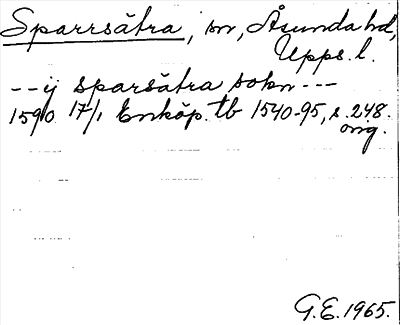 Sparrsätra, sn, Åsunda hd,
Upps. l.
--ij sparsätra sokn---
1590 17/1 Enköp. tb 1540-95, s. 248.
orig.
G.E. 1965.